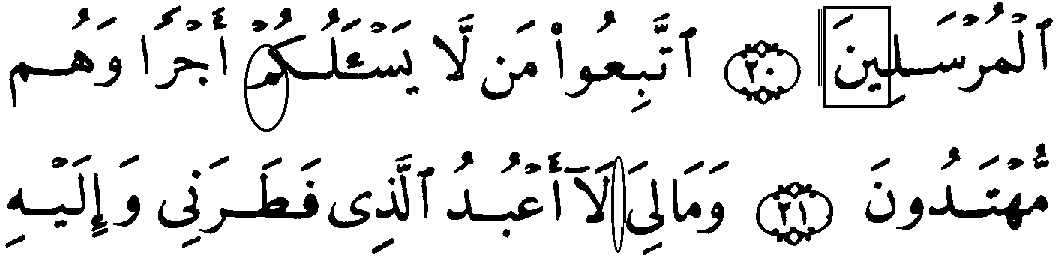 ٱلْمُرْسَلِينَ ٢٠ ٱتَّبِعُوا۟ مَن لَّا يَسْـَٔلُكُمْ أَجْرًا وَهُم
مُّهْتَدُونَ ٢١ وَمَالِىَ لَآ أَعْبُدُ ٱلَّذِى فَطَرَنِى وَإِلَيْهِ